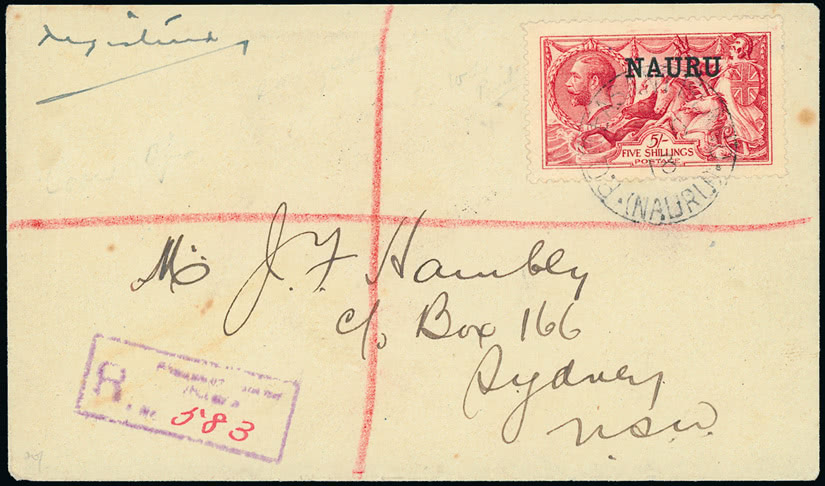 Registered
NAURU
5/-
FIVE SHILLINGS
POSTAGE
(NAURU)
Mr J. F. Hambly
c/o Box 166
Sydney
N.S.W.
R
583